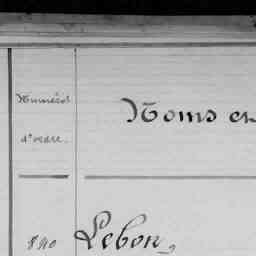 Numéros
d'ordre.
Noms en
840 Lebon,